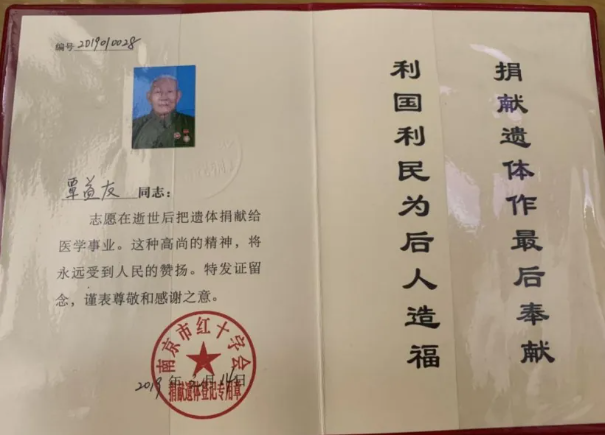 编号 2019010028
覃益友 同志：
志愿在逝世后把遗体捐献给
医学事业。这种高尚的精神，将
永远受到人民的赞扬。特发证留
念，谨表尊敬和感谢之意。
南京市红十字会
捐献遗体登记专用章
2019 年 月 14 日
捐献遗体作最后奉献
利国利民为后人造福